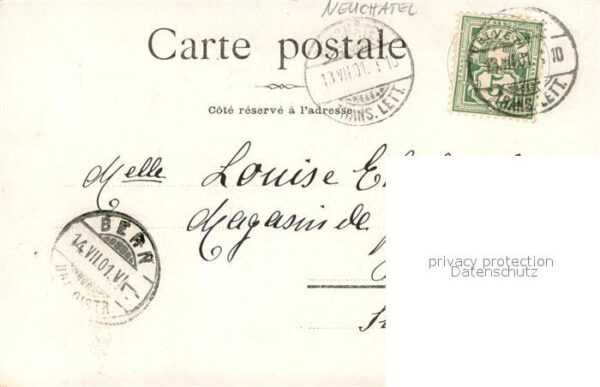 NEUCHATEL
Carte postale
13.VII.01.
TRANS. LETT.
HELVETIA
5
13.VII.01.
10
TRANS. LETT.
Côté réservé à l'adresse
Melle Louise
Magasin de
BERN
14.VII.01.VI
privacy protection
Datenschutz